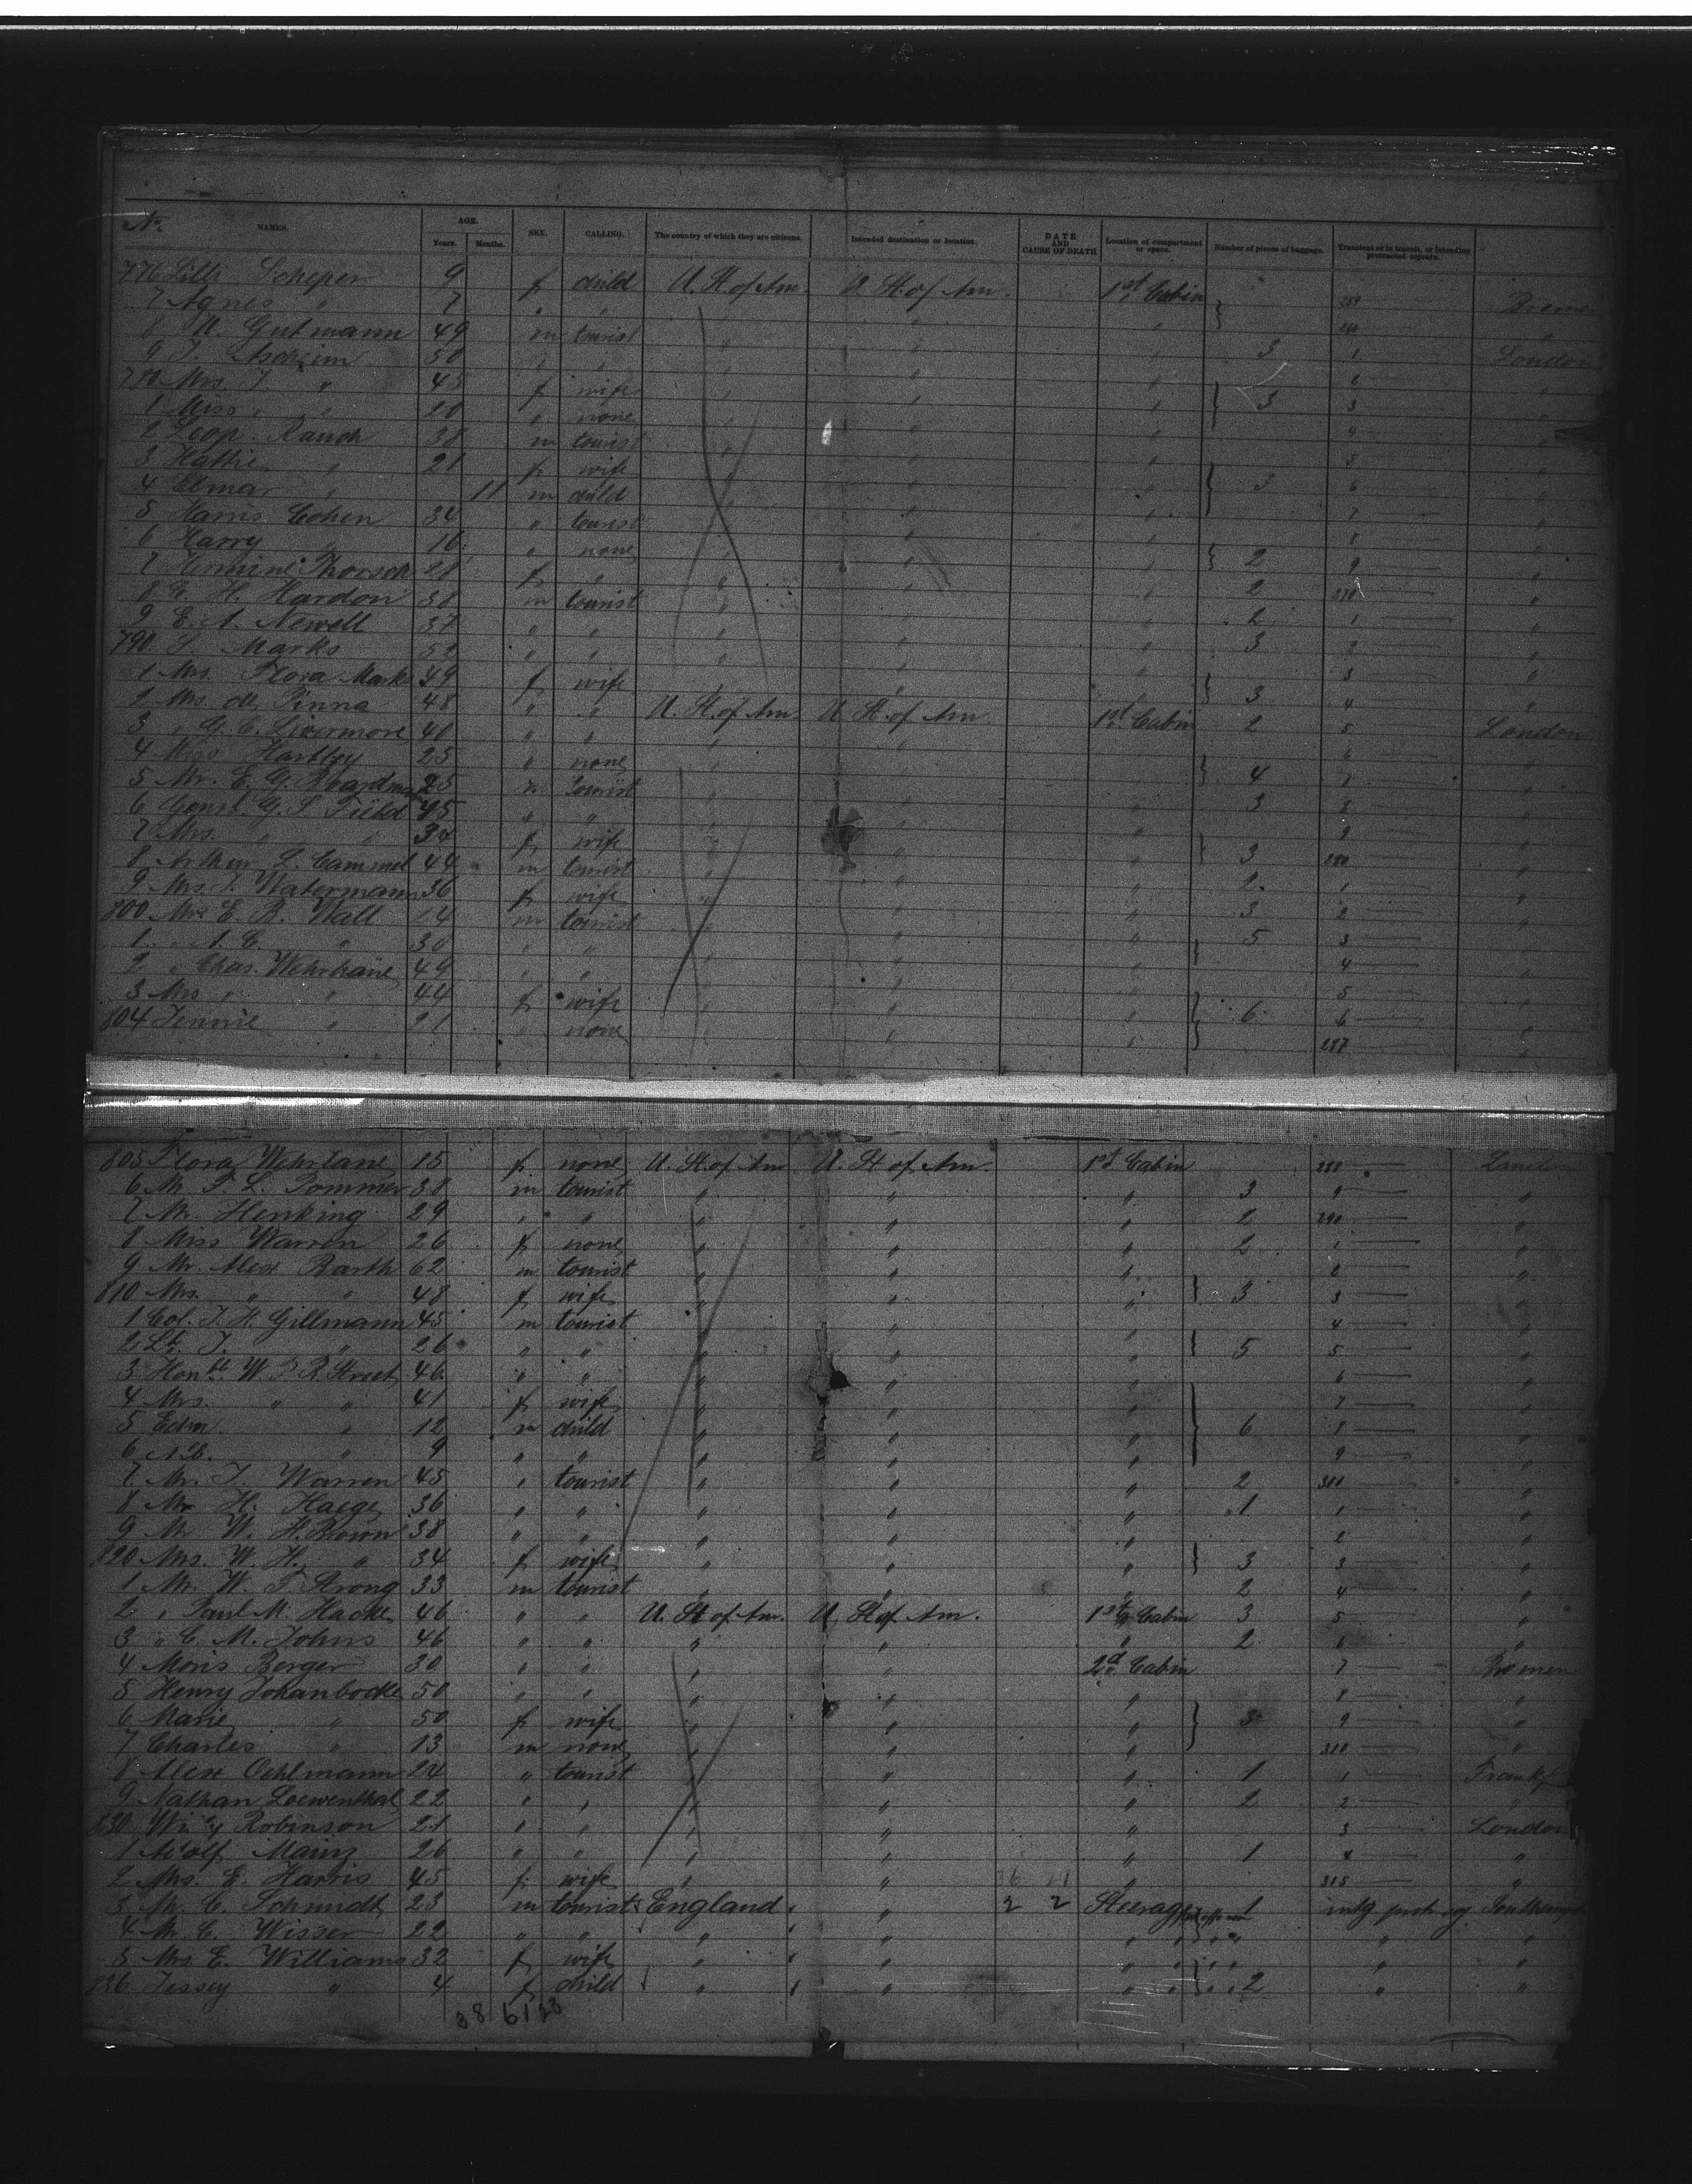 No. NAMES. AGE. Years. Months. SEX. CALLING. The country of which they are citizens. Intended destination or location. DATE AND CAUSE OF DEATH Location of compartment or space. Number of pieces of baggage. Transient or in transit, or intending protracted sojourn.
776 Lilli Scheper 9 f child U. St. of Am. U. St. of Am. 1st Cabin 259 Bremen
7 Agnes " 7 " " " " " 260 "
8 N. Gutmann 49 m tourist " " " 3 1 London
9 J. Ascheim 50 " " " " " 2 "
780 Mrs. J. " 45 f wife " " " 3 3 "
1 Miss " " 20 " none " " " 4 "
2 Leop. Rauch 38 m tourist " " " 5 "
3 Hattie " 21 f wife " " " 3 6 "
4 Elmar " 11 m child " " " 7 "
5 Harris Cohen 34 " tourist " " " 8 "
6 Harry " 16 " none " " " 2 9 "
7 Hermine Thorsch 28 f " " " " 2 270 "
8 G. H. Hardon 38 m tourist " " " 2 1 "
9 E. A. Newell 37 " " " " " 3 2 "
790 S. Marks 52 " " " " " 3 "
1 Mrs. Flora Marks 49 f wife " " " 3 4 "
2 Mrs. de Pinna 48 " " U. St. of Am. U. St. of Am 1st Cabin 2 5 London
3 " G. C. Livermore 40 " " " " " 6 "
4 Miss Hartley 25 " none " " " 4 7 "
5 Mr. E. G. Boardman 25 m tourist " " " 3 8 "
6 Consl. G. S. Field 45 " " " " " 9 "
7 Mrs. " " 34 f wife " " " 3 280 "
8 Arthur L. Cammel 44 m tourist " " " 2 1 "
9 Mrs. J. Watermann 36 f wife " " " 3 2 "
800 Mr. E. B. Wall 14 m tourist " " " 5 3 "
1 " A. C. " 30 " " " " " 4 "
2 " Chas. Wehrhane 49 " " " " " 5 "
3 Mrs. " " 44 f wife " " " 6 6 "
804 Jennie " 21 " none " " " 287 "
805 Flora Wehrhane 15 f none U. St. of Am U. St. of Am. 1st Cabin 288 London
6 Mr. F. L. Pommer 38 m tourist " " " 3 9 "
7 Mr. Henking 29 " " " " " 2 290 "
8 Miss Warren 26 f none " " " 2 1 "
9 Mr. Alex Barth 62 m tourist " " " 2 "
810 Mrs. " " 48 f wife " " " 3 3 "
1 Col. J. H. Gillmann 45 m tourist " " " 4 "
2 Lt. J. " 26 " " " " " 5 5 "
3 Honble W. P. R. Street 46 " " " " " 6 "
4 Mrs. " " 41 f wife " " " 7 "
5 Edm. " 12 m child " " " 6 8 "
6 " 9 " " " " " 9 "
7 Mr. J. Warren 45 " tourist " " " 2 300 "
8 Mr H. Haege 36 " " " " " 1 1 "
9 Mr W. H. Brown 38 " " " " " 2 "
820 Mrs. W. H. " 34 f wife " " " 3 3 "
1 Mr. W. F. Strong 33 m tourist " " " 2 4 "
2 " Paul M. Hacke 46 " " U. St. of Am. U. St. of Am. 1st Cabin 3 5 "
3 " C. M. Johns 46 " " " " " 2 6 "
4 Moris Berger 30 " " " " 2d Cabin 7 Bremen
5 Henry Johanbocke 50 " " " " " 8 "
6 Marie " 50 f wife " " " 3 9 "
7 Charles " 13 m none " " " 310 "
8 Alex Oehlmann 24 " tourist " " " 1 1 Frankf
9 Nathan Loewenthal 22 " " " " " 2 2 "
830 Robinson 21 " " " " " 3 London
1 Adolf Mainz 26 " " " " " 1 4 "
2 Mrs. E. Harris 45 f. wife " " " 315 "
3 Mr. C. Schmidt 23 m tourist England " 2 2 Steerage 1 intg protr soj Southampt
4 Mr. C. Wisser 22 " " " " " " "
5 Mrs. E. Williams 32 f wife " " " " "
836 Jessey " 4 f child " " " 2 " "
38 6123